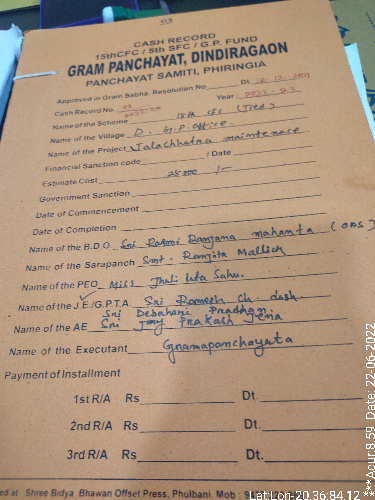 03
CASH RECORD
15thCFC / 5th SFC / G.P. FUND
GRAM PANCHAYAT, DINDIRAGAON
PANCHAYAT SAMITI, PHIRINGIA
Approved in Gram Sabha. Resolution No. Dt. 16.12.2021
Cash Record No. 03 Year: 2022-23
Name of the Scheme 15th CFC (Tied)
Name of the Village D. G.P. Office.
Name of the Project Jalachhatra maintenace
Financial Sanction code / Date
Estimate Cost 25000 /-
Government Sanction
Date of Commencement
Date of Completion
Name of the B.D.O. Sri Rasmi Ranjana mahanta (OAS)
Name of the Sarapanch Smt. Ranjita Mallick
Name of the PEO Miss Jhili Lata Sahu.
Name of the J.E./G.P.T.A. Sri Romesh ch. dash
Sri Debahari Pradhan
Name of the AE Sri Joy Prakash Jena
Name of the Executant Gramapanchayata
Payment of Installment
1st R/A Rs Dt.
2nd R/A Rs Dt.
3rd R/A Rs Dt.
ed at Shree Bidya Bhawan Offset Press, Phulbani. Mob : 9
Lat:Lon-20.36:84.12
***Acur:8.59 Date: 22-06-2022